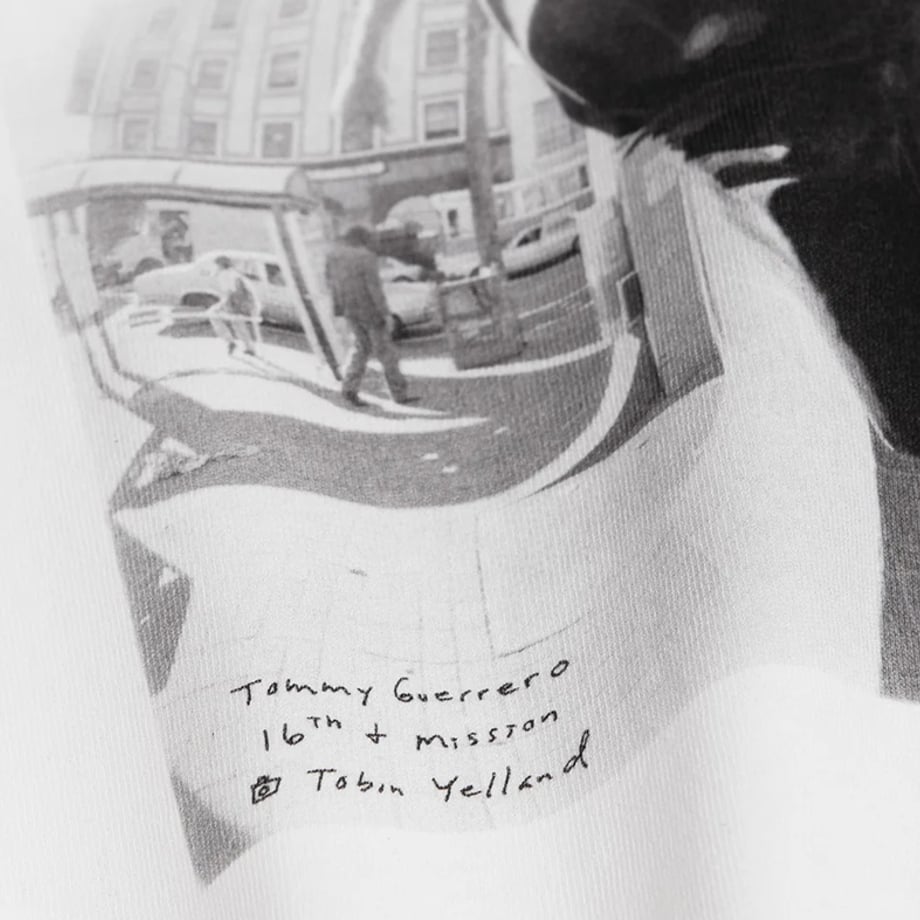 Tommy Guerrero
16TH + Mission
Tobin Yelland